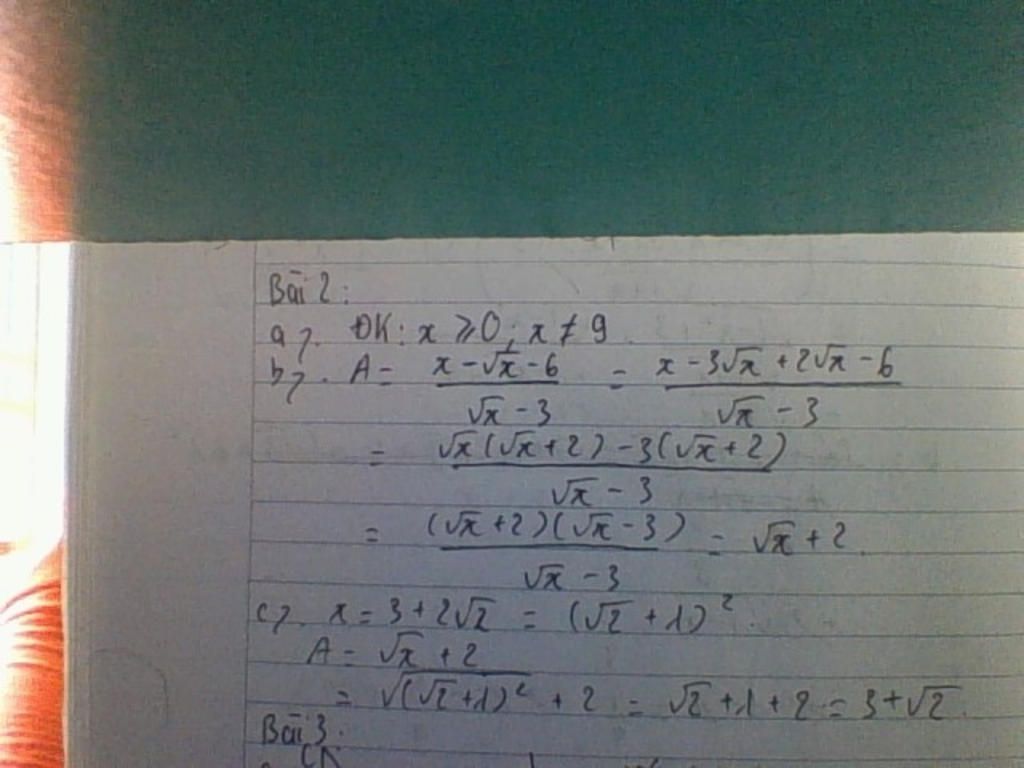 Bài 2:
a, ĐK: x ≥ 0; x ≠ 9.
b, A = (x - √x - 6)/(√x - 3) = (x - 3√x + 2√x - 6)/(√x - 3)
= (√x(√x + 2) - 3(√x + 2))/(√x - 3)
= ((√x + 2)(√x - 3))/(√x - 3) = √x + 2.
c, x = 3 + 2√2 = (√2 + 1)².
A = √x + 2
= √((√2 + 1)²) + 2 = √2 + 1 + 2 = 3 + √2.
Bài 3.